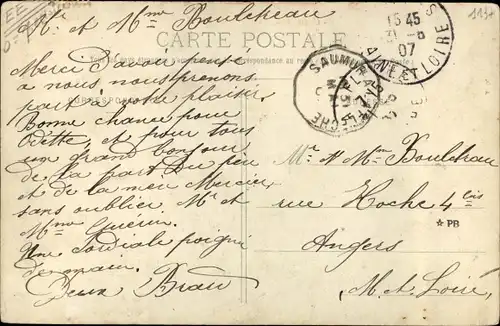 Mr. et Mme Boultreau
CARTE POSTALE
Merci d'avoir pensé
à nous nous prenons
part à votre plaisir
Bonne chance pour
Odette, et pour tous
un grand bonjour
de la part du
et de la
sans oublier Mr et
Mme Guérin.
Une cordiale poigné
de main.
Deux
15 45
07
ET LOIRE
SAUMUR
Mr et Mme Boultreau
rue Hoche 4 bis
★ PB
Angers
M. et Loire